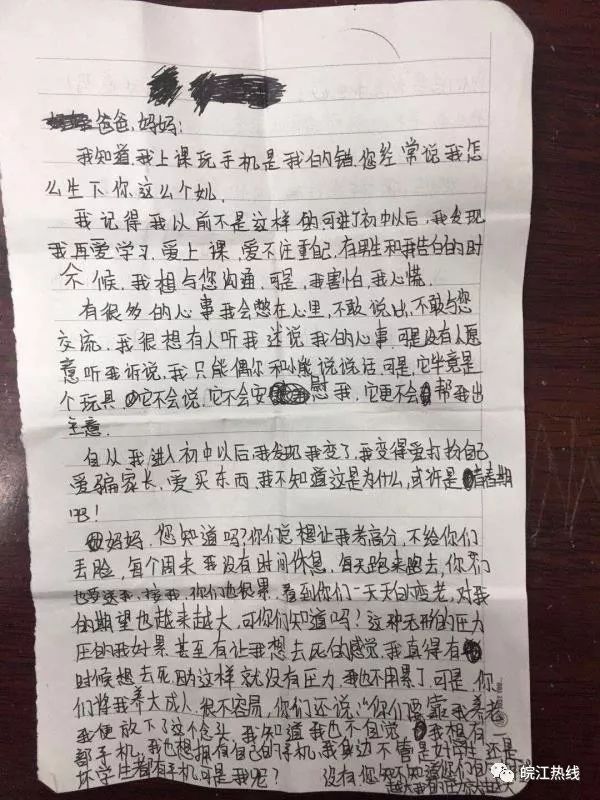 爸爸、妈妈:
我知道我上课玩手机是我的错.您经常说我怎
么生下你这么个
我记得我以前不是这样的可进了初中以后,我发现
我再爱学习.爱上课,爱不注重自己.有男生和我告白的时
候,我想与您沟通,可是,我害怕,我心慌.
有很多的心事我会憋在心里,不敢说出,不敢与您
交流.我很想有人听我述说我的心事可是没有人愿
意听我诉说,我只能偶尔和小熊说说话可是,它毕竟是
个玩具,它不会说,它不会安慰我,它更不会帮我出
主意.
自从我进入初中以后我发现我变了,我变得爱打扮自己
爱骗家长,爱买东西,我不知道这是为什么,或许是青春期
吧!
妈妈,您知道吗?你们说想让我考高分,不给你们
丢脸,每个周末我没有时间休息,每天跑来跑去,你们
也要送我,接我,你们也很累,看到你们一天天的变老,对我
的期望也越来越大,可你们知道吗?这种无形的压力
压的我好累.甚至有让我想去死的感觉,我真得有
时候想去死,这样就没有压力,我也不用累了,可是,你
们将我养大成人,很不容易,你们还说,"你们要靠我养老
我便放下了这个念头,我知道我也不自觉,我想有一
部手机,我也想拥有自己的手机,我身边不管是好学生还是
坏学生都有手机,可是我呢? 没有,您知不知道你们
皖江热线